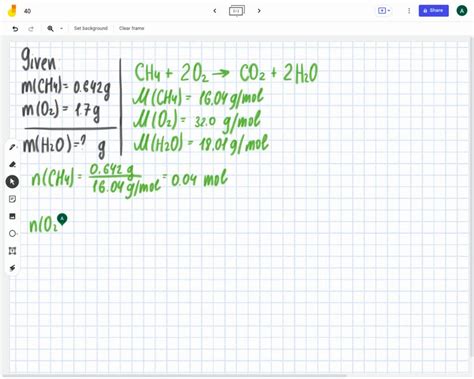 40
1/1
Share
A
Set background
Clear frame
given
m(CH4)= 0.642g
m(O2)= 1.7g
m(H2O)=? g
CH4 + 2O2 → CO2 + 2H2O
M(CH4) = 16.04 g/mol
M(O2) = 32.0 g/mol
M(H2O) = 18.01 g/mol
n(CH4) = 0.642 g / 16.04 g/mol = 0.04 mol
n(O2
A